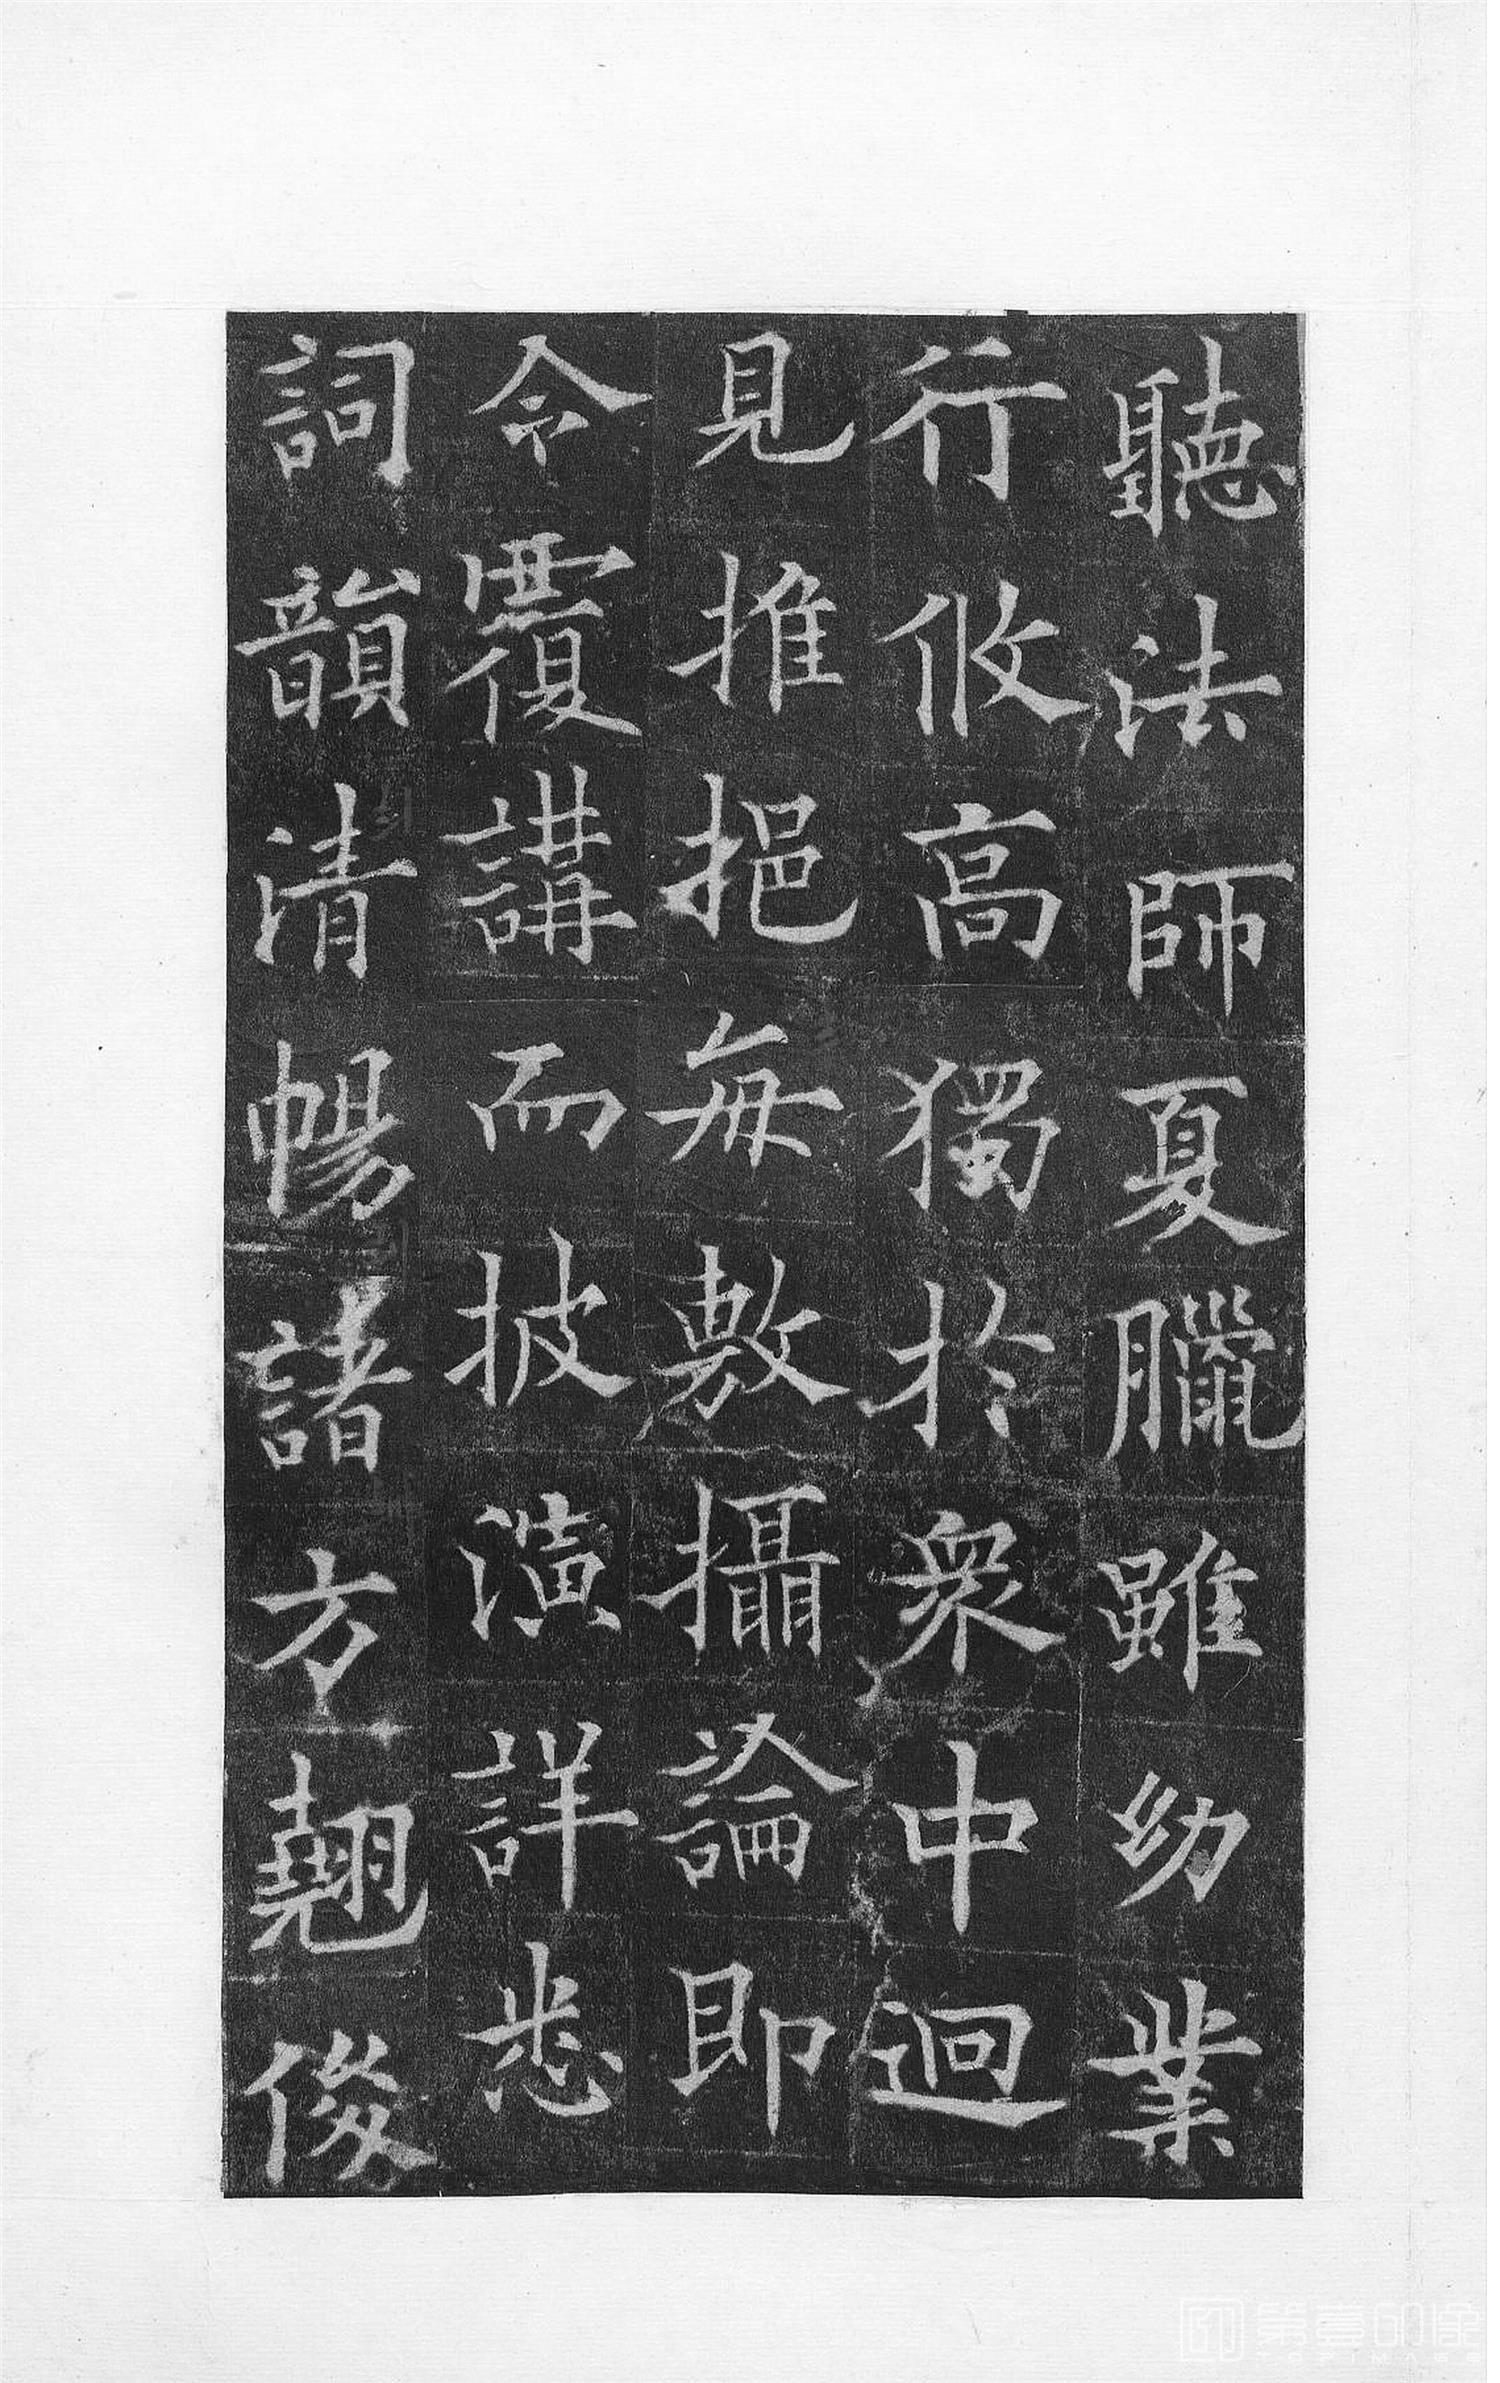 聽法師夏臘雖幼業
行攸高獨於衆中迥
見推挹每敷攝論即
令覆講而披演詳悉
詞韻清暢諸方翹俊
第壹印像
TOPIMAGE